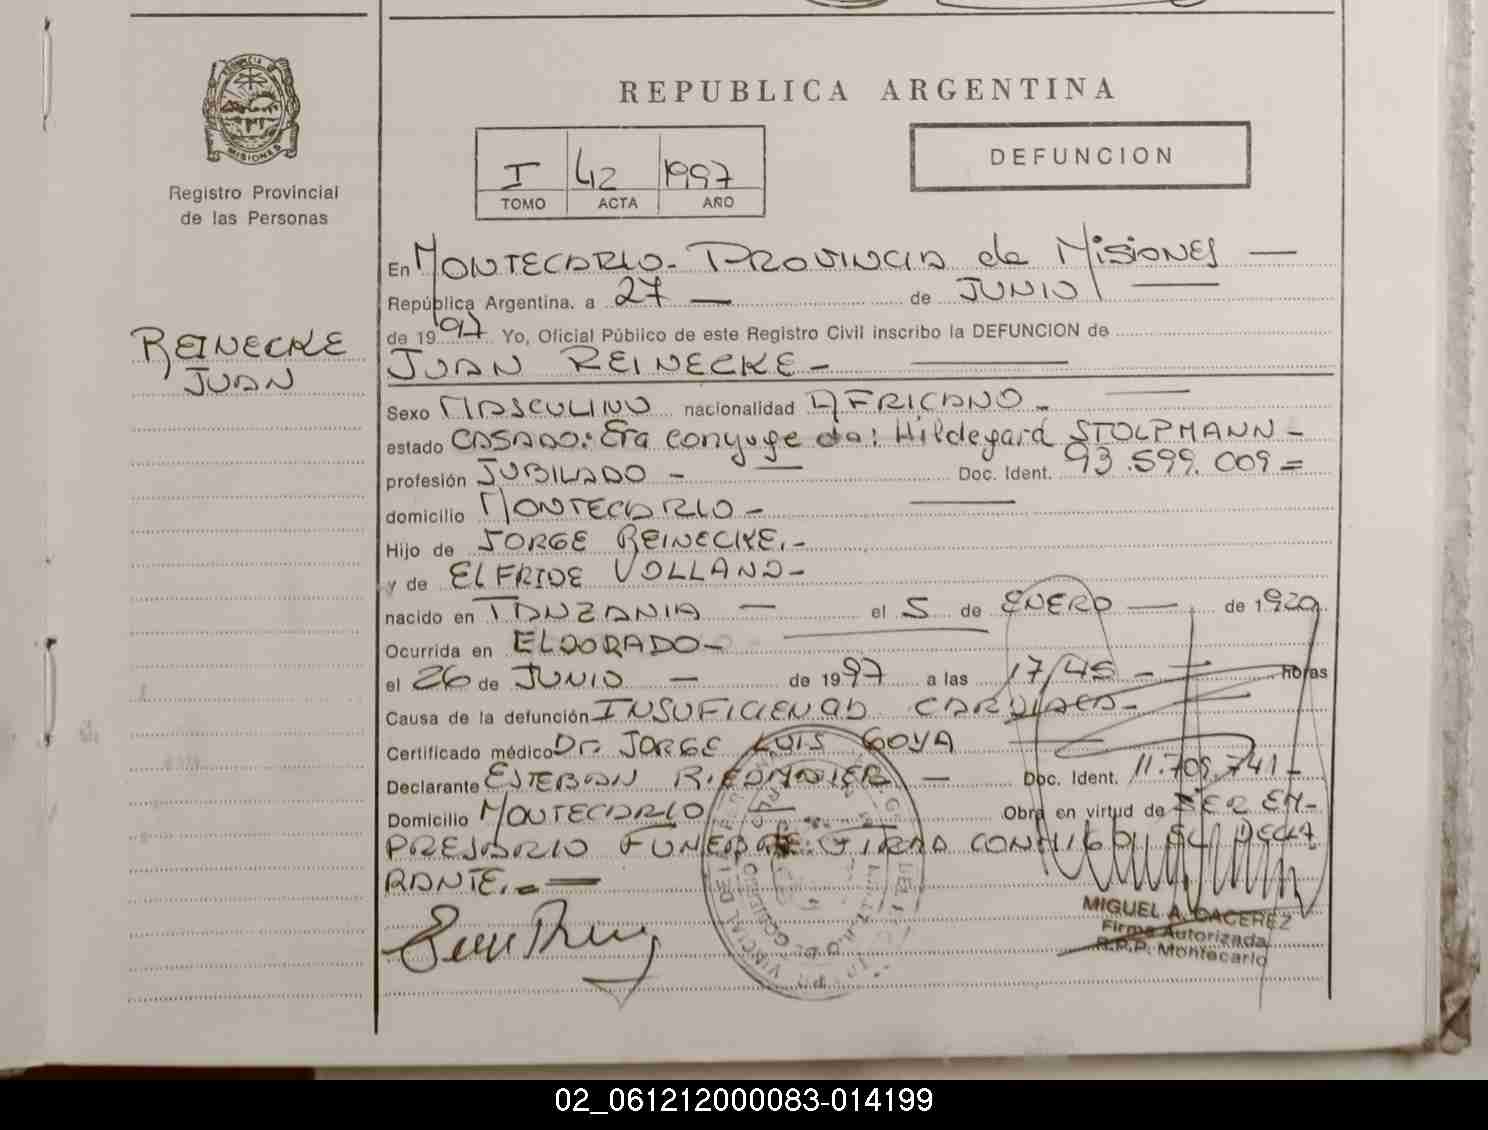 PROVINCIA DE
MISIONES
Registro Provincial
de las Personas
REINECKE
JUAN
REPUBLICA ARGENTINA
I 42 1997
TOMO ACTA AÑO
DEFUNCION
En MONTECARLO - PROVINCIA de MISIONES —
República Argentina. a 27 — de JUNIO —
de 1997 Yo, Oficial Público de este Registro Civil inscribo la DEFUNCION de
JUAN REINECKE - —
Sexo MASCULINO nacionalidad AFRICANO - —
estado CASADO: Era conyuge de: Hildegard STOLPMANN -
profesión JUBILADO - — Doc. Ident. 93.599.009 =
domicilio MONTECARLO - —
Hijo de JORGE REINECKE.-
y de ELFRIDE VOLLAND -
nacido en TANZANIA — el 5 de ENERO — de 1920
Ocurrida en ELDORADO -
el 26 de JUNIO — de 1997 a las 17/45 - horas
Causa de la defunción INSUFICIENCIA CARDIACA -
Certificado médico Dr. JORGE LUIS GOYA —
Declarante ESTEBAN — Doc. Ident. 11.705.741 -
Domicilio MONTECARLO — Obra en virtud de SER EM-
PRESARIO FUNEBRE: FIRMA CONMIGO EL DECLA
RANTE. - —
MIGUEL A. CACEREZ
Firma Autorizada
R.P.P. Montecarlo
02_061212000083-014199